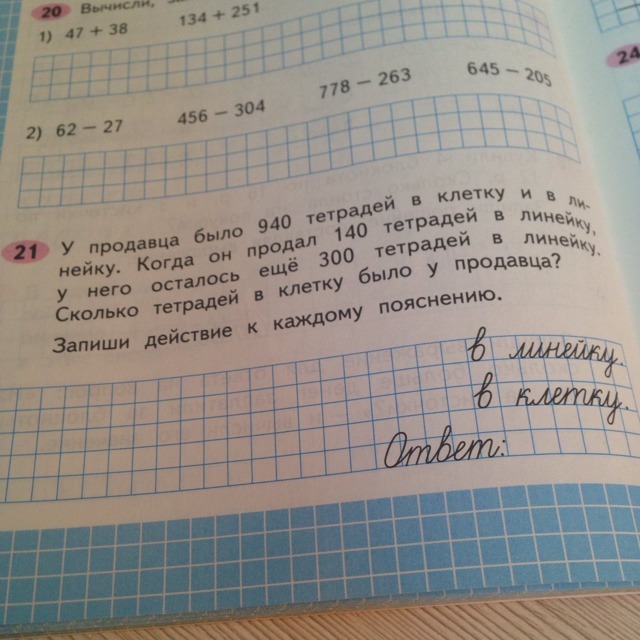 20 Вычисли,
1) 47 + 38 134 + 251
2) 62 − 27 456 − 304 778 − 263 645 − 205
24
21 У продавца было 940 тетрадей в клетку и в ли-
нейку. Когда он продал 140 тетрадей в линейку,
у него осталось ещё 300 тетрадей в линейку.
Сколько тетрадей в клетку было у продавца?
Запиши действие к каждому пояснению.
в линейку.
в клетку.
Ответ: